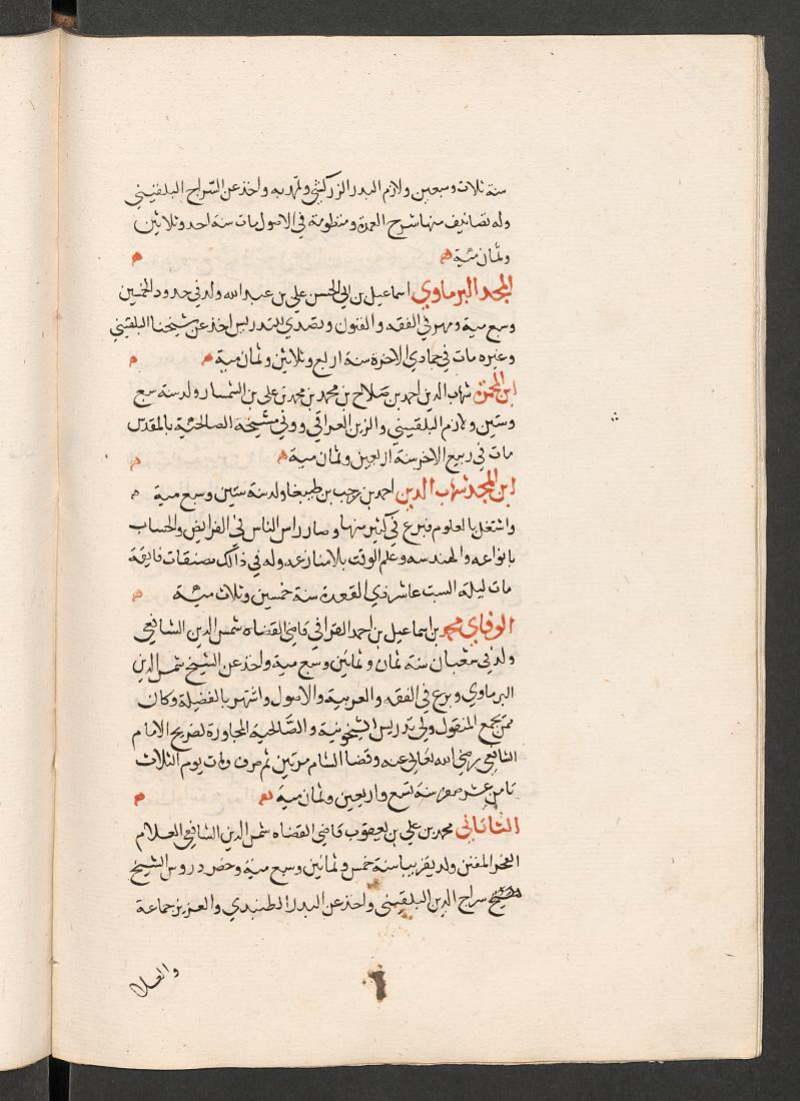 سنة ثلاث وسبعين ولازم البدر الزركشي وتمهر به واخذ عن السراج البلقيني
وله تصانيف منها شرح العمدة ومنظومة في الاصول مات سنة احد وثلاثين
وثمان مئة
المجد البرماوي اسماعيل بن ابي الحسن علي بن عبد الله ولد في حدود الخمسين
وسبع مية ومهر في الفقه والفنون وتصدي للتدريس اخذ عن شيخنا البلقيني
وغيره مات في جمادي الاخرة سنة اربع وثلاثين وثمان مية
ابن المحمرة شهاب الدين احمد بن صلاح بن محمد بن محمد بن علي بن السمسار ولد سنة سبع
وستين ولازم البلقيني والزين العراقي وولي مشيخة الصالحية بالمقدس
مات في ربيع الاخر سنة اربعين وثمان مية
ابن المجد شهاب الدين احمد بن رجب بن طيبغا ولد سنة ستين وسبع مية
واشتغل بالعلوم فبرع في كثير منها وصار راس الناس في الفرايض والحساب
بانواعه والهندسه وعلم الوقت بلا منازعه وله في ذالك مصنفات فايقة
مات ليلة السبت عاشر ذي القعدة سنة خمسين وثلاث مية
الوفاي محمد بن اسماعيل بن احمد القرافي قاضي القضاه شمس الدين الشافعي
ولد في شعبان سنة ثمان وثمانين وسبع مية واخذ عن الشيخ شمس الدين
البرماوي وبرع في الفقه والعربية والاصول واشتهر بالفضيلة وكان
ممن يجمع المنقول ولي تدريس الشيخونية والصلاحية المجاورة لضريح الامام
الشافعي رضي الله تعالى عنه وقضا الشام مرتين ثم صرف ومات يوم الثلاث
ثامن عشر صفر سنة تسع واربعين وثمان مية
القاياتي محمد بن علي بن يعقوب قاضي القضاه شمس الدين الشافعي العلام
النحو المفنن ولد تقريبا سنة خمس وثمانين وسبع مية وحضر دروس الشيخ
سراج الدين البلقيني واخذ عن البدر الطنبدي والعز بن جماعة
والعلا